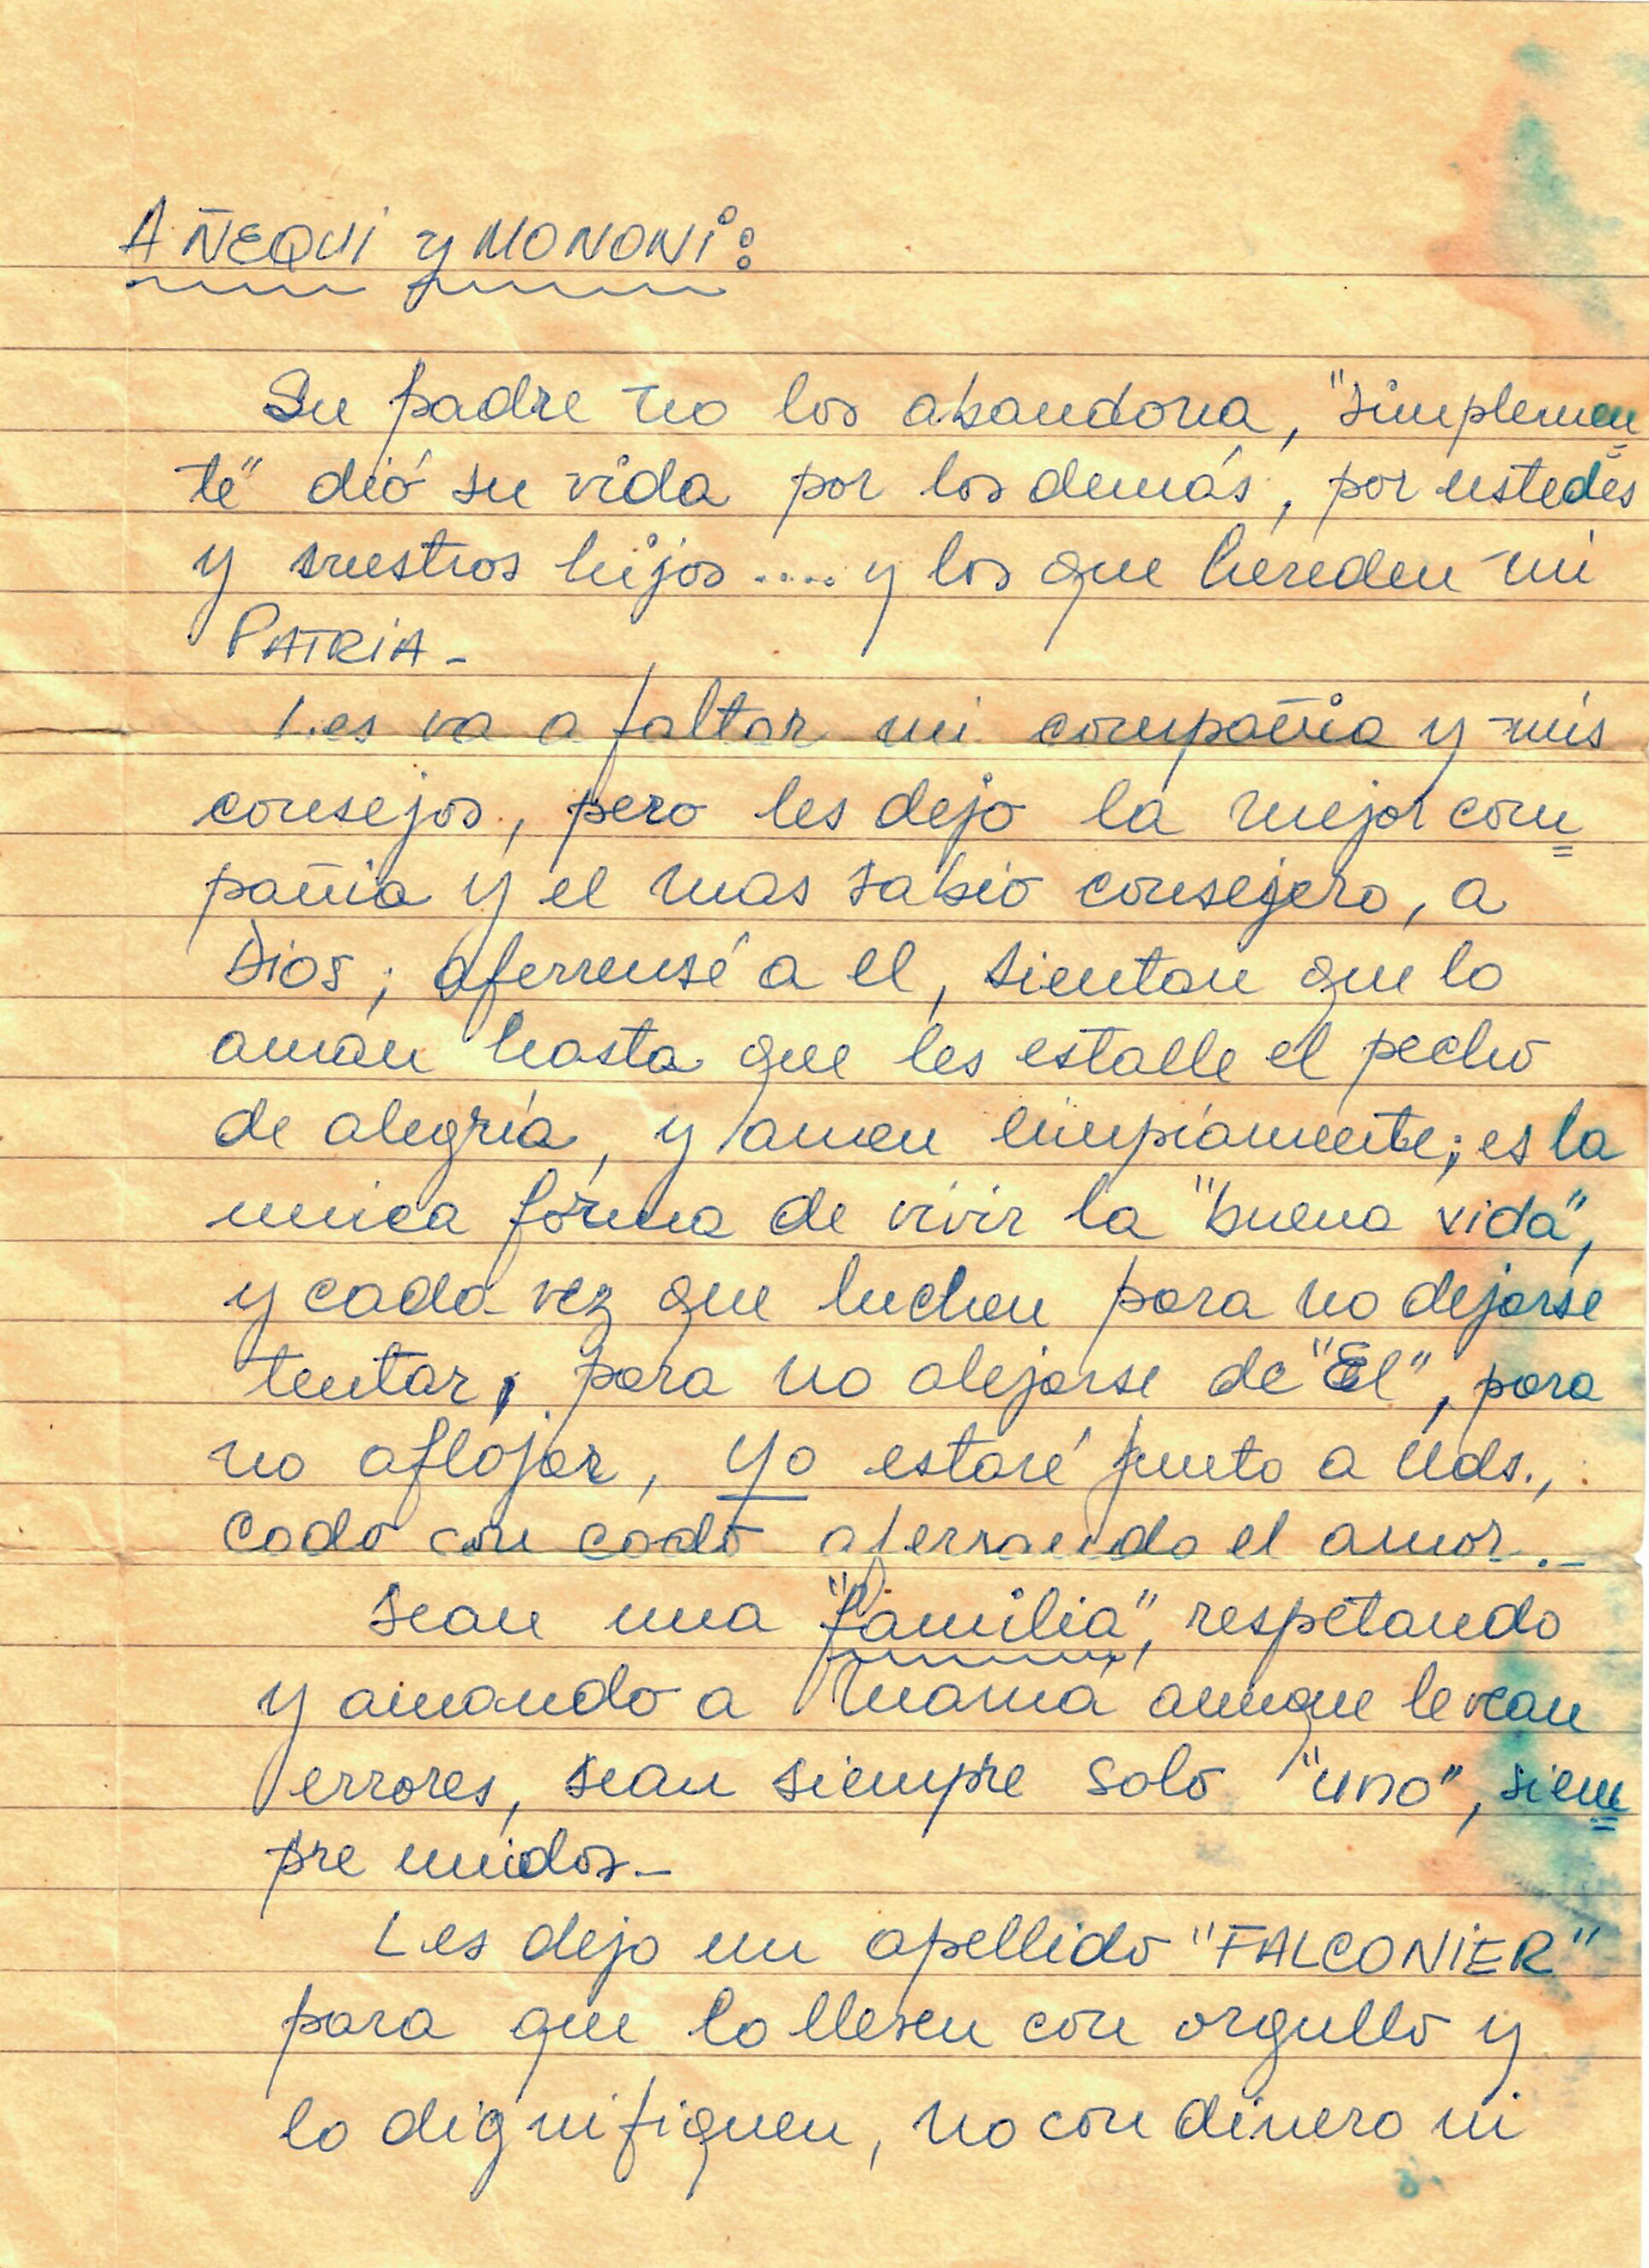 A ÑEQUI y MONONI:
Su padre no los abandona, "simplemen
te" dió su vida por los demás, por ustedes
y vuestros hijos .... y los que hereden mi
PATRIA -
Les va a faltar mi compañia y mis
consejos, pero les dejo la mejor com
pañia y el mas sabio consejero, a
Dios; aferrensé a el, sientan que lo
aman hasta que les estalle el pecho
de alegría, y amen limpiamente; es la
unica forma de vivir la "buena vida",
y cada vez que luchen para no dejarse
tentar, para no alejarse de "El", para
no aflojar, Yo estaré junto a Uds.,
codo con codo aferrando el amor.-
Sean una "familia", respetando
y amando a mamá aunque le vean
errores, sean siempre solo "uno", siem
pre unidos-
Les dejo un apellido "FALCONIER"
para que lo lleven con orgullo y
lo dignifiquen, no con dinero ni